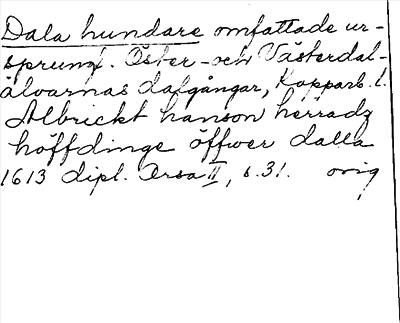 Dala hundare omfattade ur-
sprungl. Öster- och Västerdal-
älvarnas dalgångar, Kopparb. l.
Albrickt hanson herradz
höffdinge öffwer dalla
1613 dipl. Orsa II, s. 31. orig